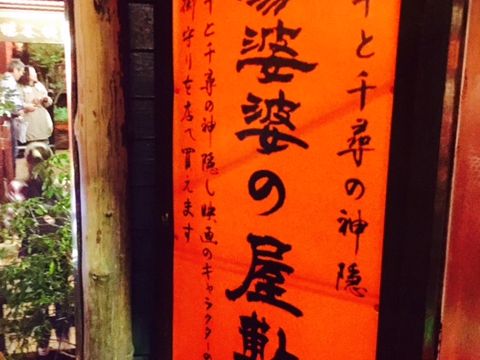 千と千尋の神隠
湯婆婆の屋敷
千と千尋の神隠し映画のキャラクターの
御守りを店で買えます